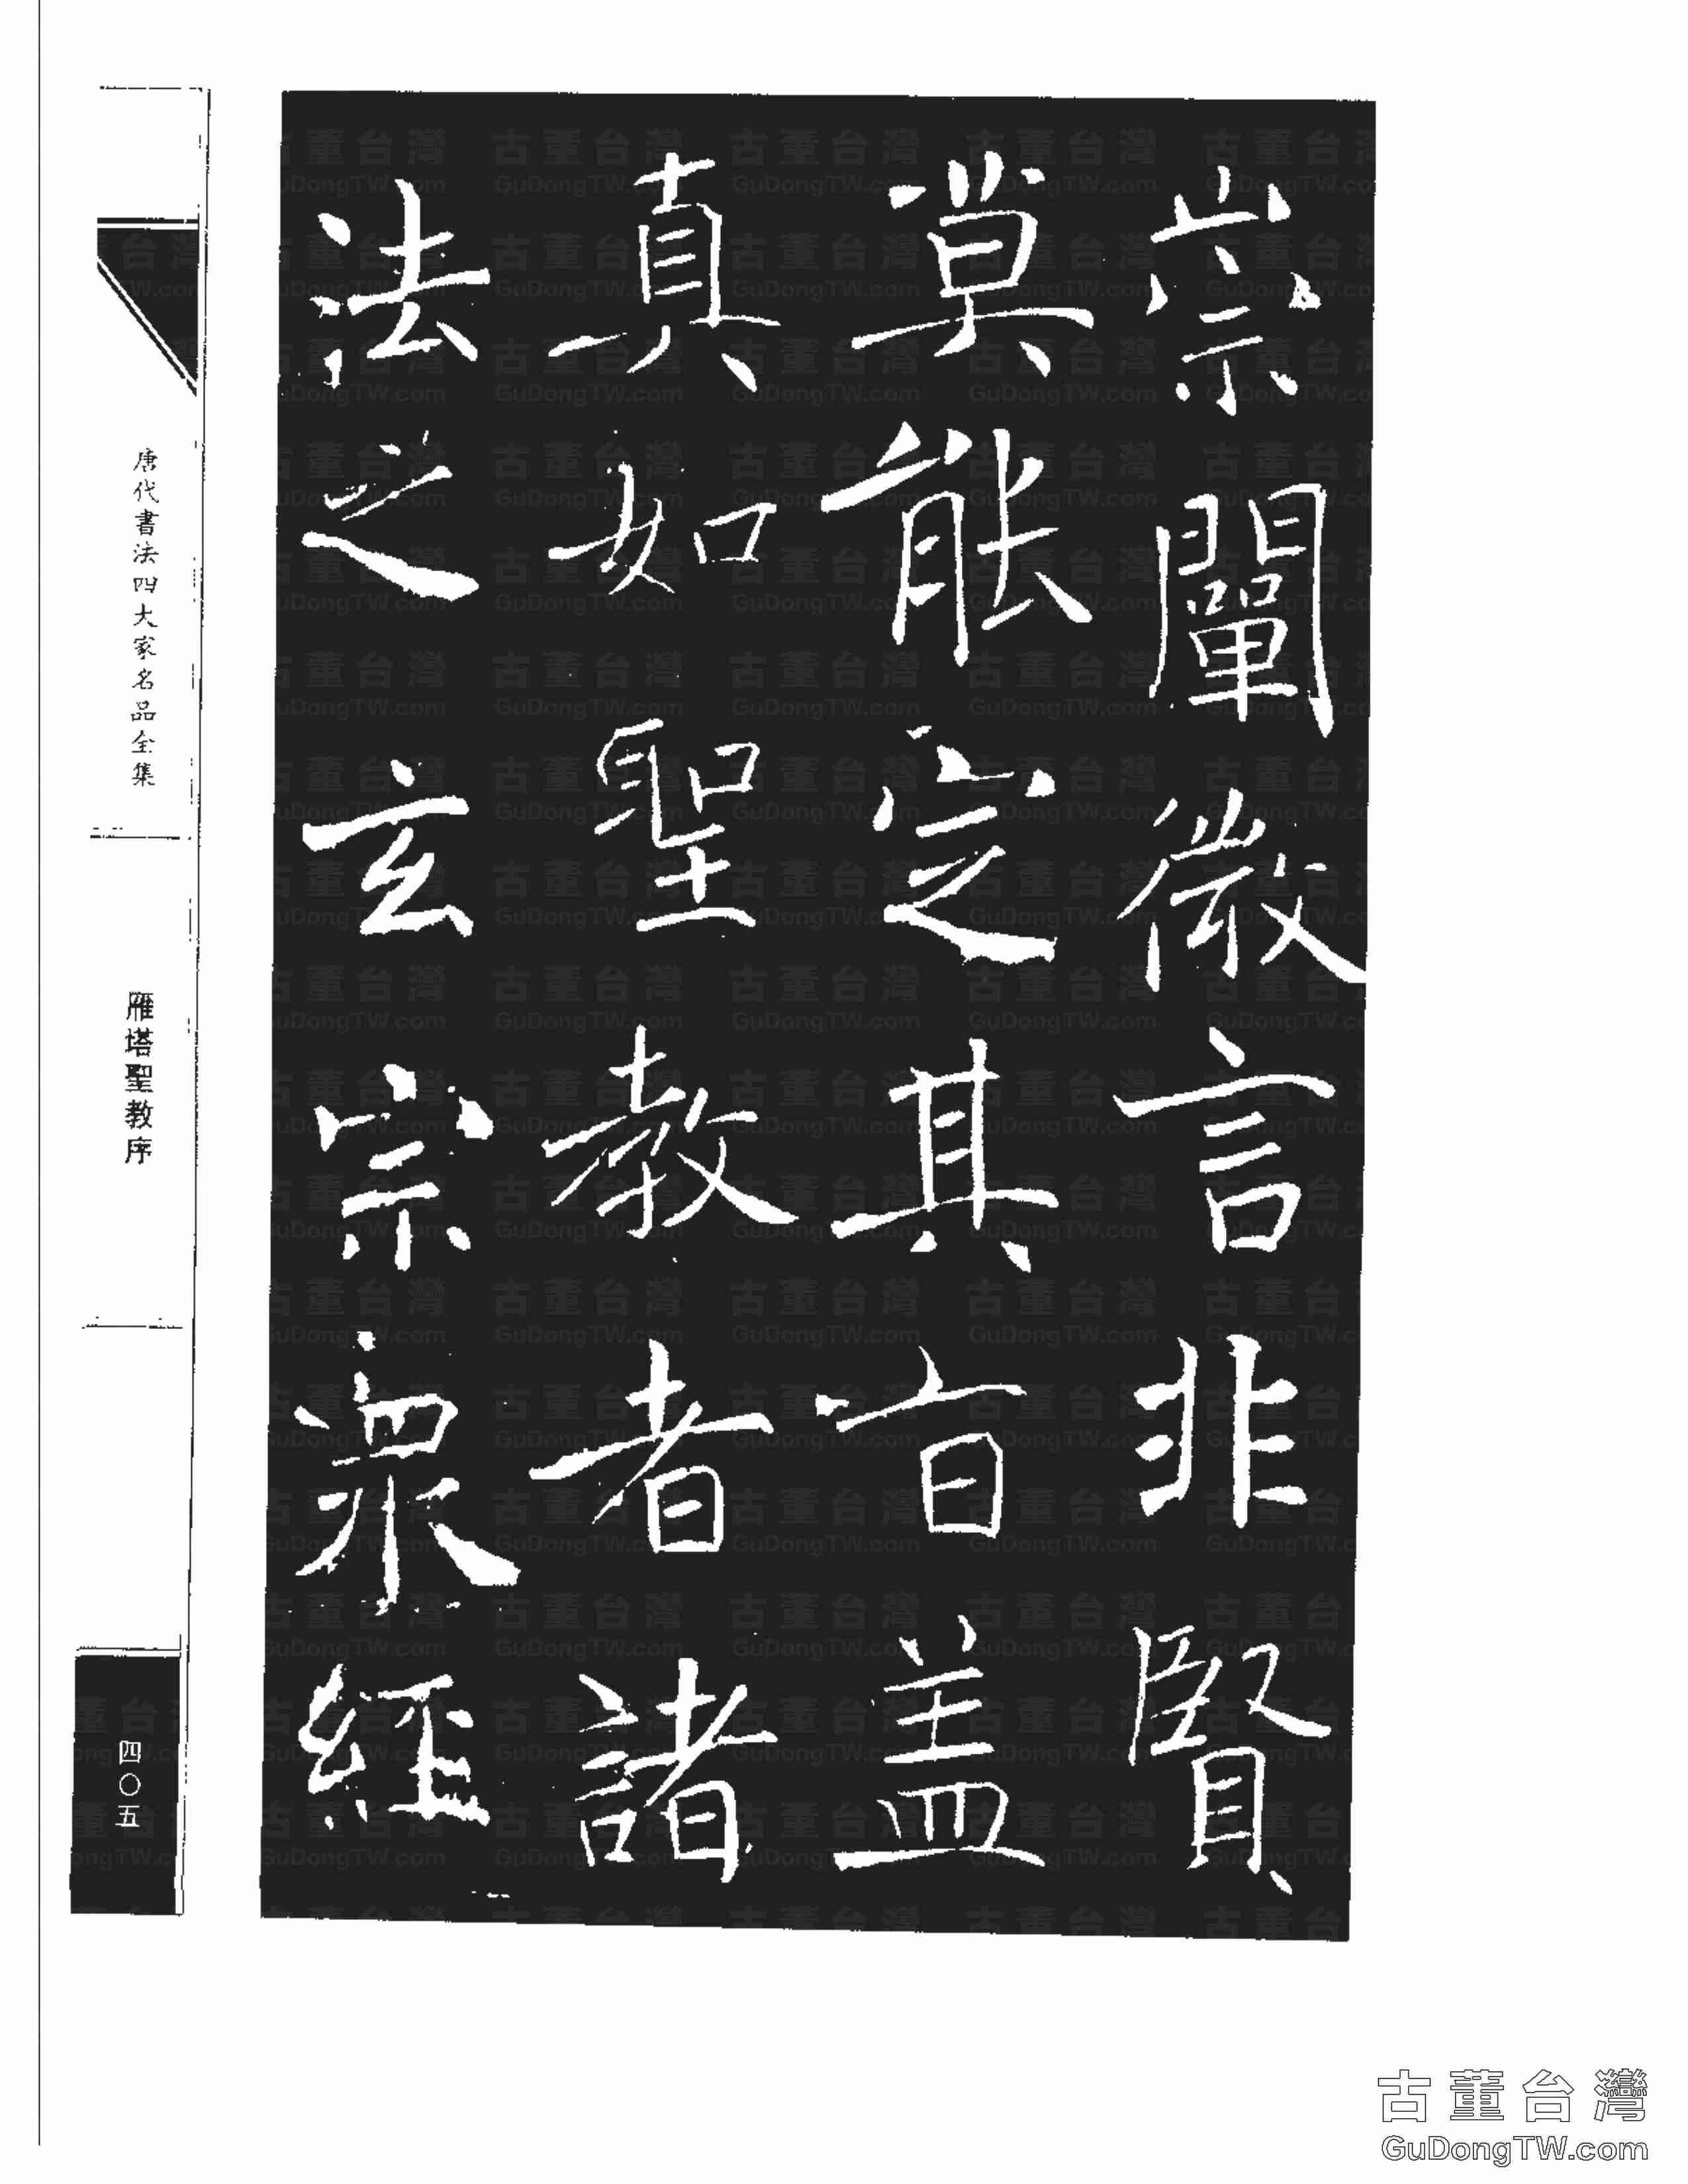 崇闡微言非賢
莫能定其旨盖
真如聖教者諸
法之玄宗衆經
唐代書法四大家名品全集
雁塔聖教序
四〇五
古董台灣
GuDongTW.com